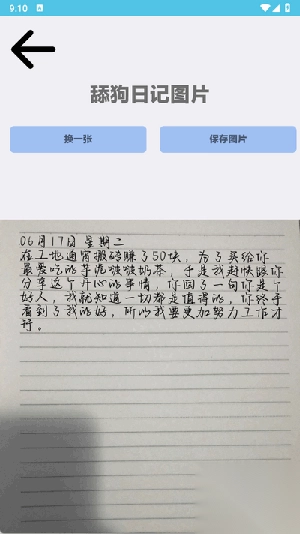 9.10
舔狗日记图片
换一张
保存图片
06月17日 星期二
在工地通宵搬砖赚了50块，为了买给你
最爱吃的芋泥啵啵奶茶，于是我赶快跟你
分享这个开心的事情，你回了一句你是个
好人，我就知道一切都是值得的，你终于
看到了我的好，所以我要更加努力工作才
行。